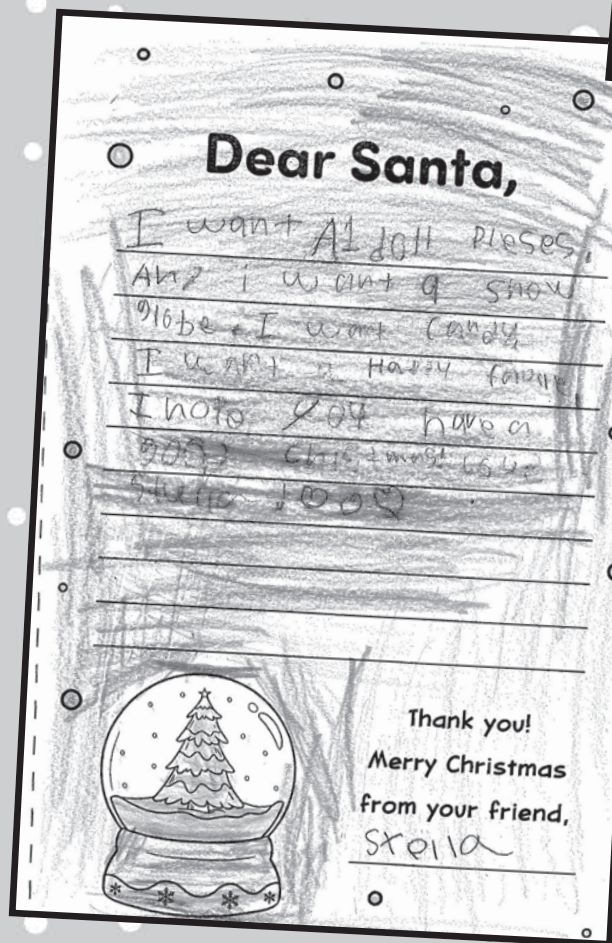 Dear Santa,
I want A1 doll Pleses.
And i want a snow
globe. I want Candy
I want a Happy
I hote you have a
good Christmas!
Stella !
Thank you!
Merry Christmas
from your friend,
Stella